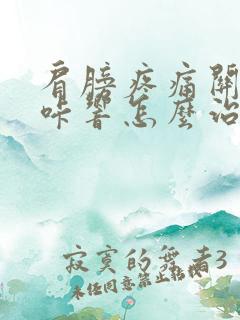 肩膀疼痛關
咔響怎麼治
寂寞的舞者3
未任同意禁止轉載